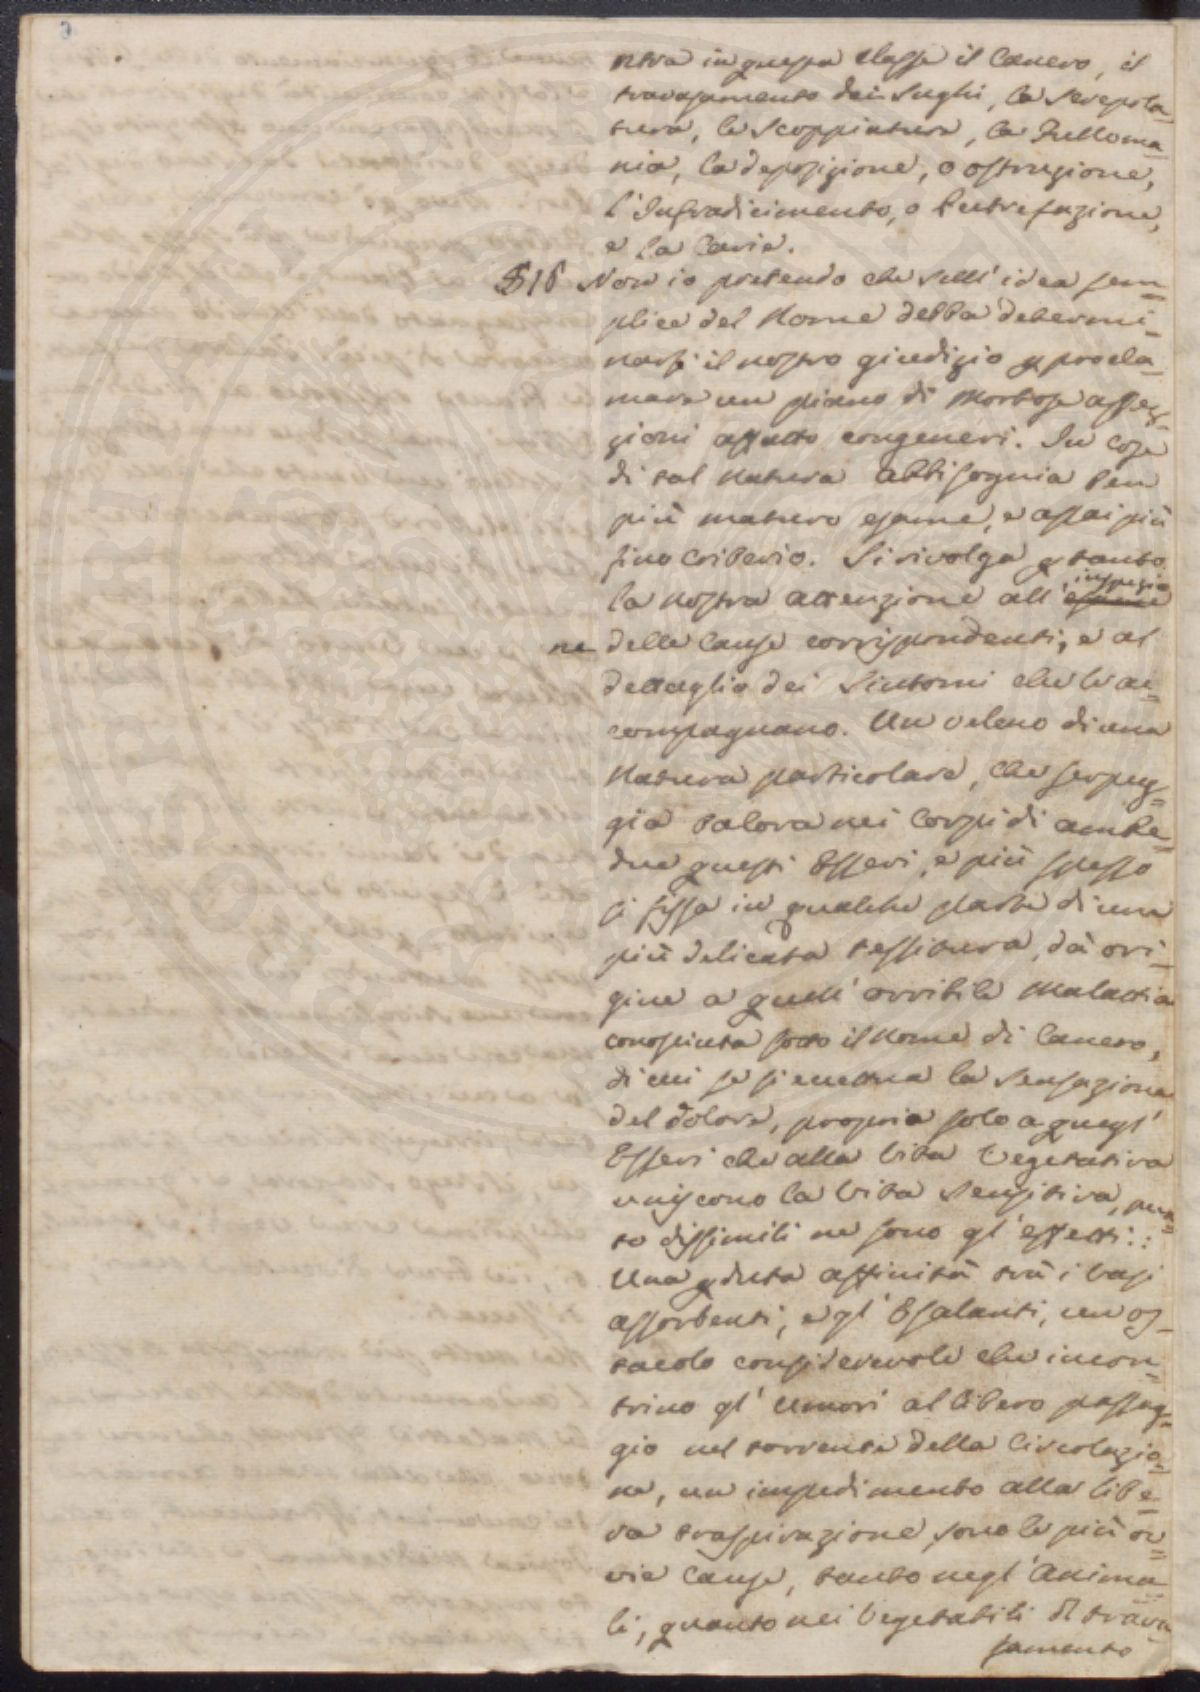 ntra in questa Classe il Cancro, il
travasamento dei Sughi, la Screpola-
tura, la Scoppiatura, la Fulloma-
nia, la deposizione, o ostruzione,
l'Infradicimento, o Putrefazione,
e la Carie.
§ 18 Non io pretendo che sull'idea sem=
plice del Nome debba determi-
narsi il nostro giudizio p procla-
mare un piano di Morbose affez-
zioni affatto congeneri. In cose
di tal natura abbisognia ben
più maturo esame, e assai più
fino Criterio. Si rivolga p tanto
la nostra attenzione all' ispezio
ne delle Cause corrispondenti, e al
dettaglio dei Sintomi che le ac=
compagnano. Un veleno di una
Natura particolare, che serpeg=
gia talora nei Corpi di ambe=
due questi Esseri, e più spesso
si fissa in qualche parte di una
più delicata tessitura, dà ori-
gine a quell' orribile Malattia
conosciuta sotto il Nome di Cancro,
di cui se si enettua la sensazione
del dolore, propria solo a quegl'
Esseri che alla Vita Vegetativa
uniscono la Vita Sensitiva, pun=
to dissimili ne sono gl' effetti::
Una pduta affinità trà i Vasi
assorbenti, e gl' Esalanti, un os-
tacolo considerevole che incon=
trino gl' Umori al libero passag=
gio nel torrente della Circolazio=
ne, un impedimento alla libe=
ra traspirazione, sono le più ov=
vie Cause, tanto negl' Anima=
li, quanto nei Vegetabili di trava=
samento